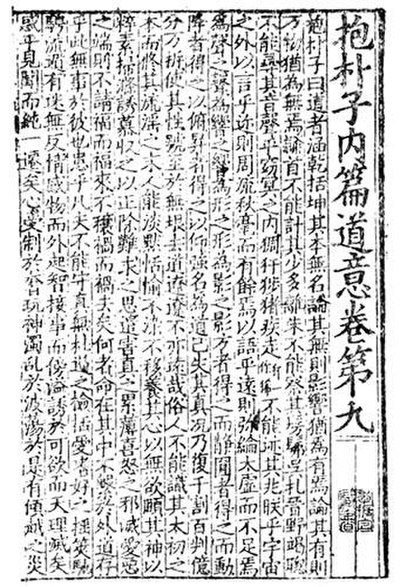 抱朴子内篇道意卷第九
抱朴子曰道者涵乾括坤其本無名論其無則影響猶為有焉論其有則
万物猶為無焉隸首不能計其少多離朱不能察其髣髴吳札晉野竭聰
不能尋其音聲乎窈冥之内猪疾走不能迹其兆朕乎宇宙
之外以言乎近則周流秋毫而有餘焉以語乎遠則弥綸太虛而不足焉
為聲之聲為響之響為形之形為影之影方者得之而靜圓者得之而動
降者得之以俯昇者得之以仰強名為道已失其真況乃復千割百判億
分万析使其姓號至於無垠去道遼遼不亦疏哉俗人不能識其太初之
本而脩其流淫之末人能淡默恬愉不染不移養其心以無欲頤其神以
粹素掃滌誘慕收之以正除難求之思遣害真之累薄喜怒之邪滅愛惡
之端則不請福而福來不禳禍而禍去矣何者命在其中不繫於外道存
乎此無事於彼也患乎凡夫不能守真無杜遏之檢括愛嗜好之揺奪馳
騁流遁有迷無反情感物而外起智接事而傍溢誘於可欲而天理滅矣
惑乎見聞而純一遷矣心受制於奢玩神濁亂於波蕩於是有傾越之災